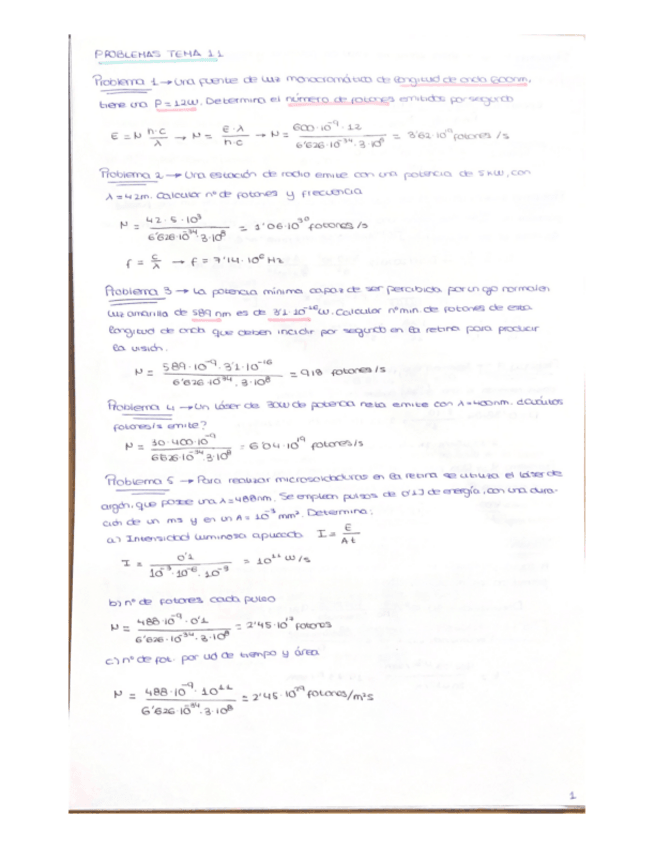 PROBLEMAS TEMA 11
Problema 1 → Una fuente de luz monocromática de longitud de onda 600nm,
tiene una P = 12W. Determina el número de fotones emitidos por segundo
E = N h·c/λ → N = E·λ/h·c → N = 600·10⁻⁹·12/6'626·10⁻³⁴·3·10⁸ = 3'62·10¹⁹ fotones/s
Problema 2 → Una estación de radio emite con una potencia de 5kW, con
λ = 42m. Calcular nº de fotones y frecuencia
N = 42·5·10³/6'626·10⁻³⁴·3·10⁸ = 1'06·10³⁰ fotones/s
f = c/λ → f = 7'14·10⁶ Hz
Problema 3 → La potencia mínima capaz de ser percibida por un ojo normal en
luz amarilla de 589 nm es de 3'1·10⁻¹⁶W. Calcular nº min. de fotones de esta
longitud de onda que deben incidir por segundo en la retina para producir
la visión.
N = 589·10⁻⁹·3'1·10⁻¹⁶/6'626·10⁻³⁴·3·10⁸ = 918 fotones/s
Problema 4 → Un láser de 30W de potencia neta emite con λ=400nm. ¿Cuántos
fotones/s emite?
N = 30·400·10⁻⁹/6'626·10⁻³⁴·3·10⁸ = 6'04·10¹⁹ fotones/s
Problema 5 → Para realizar microsoldaduras en la retina se utiliza el láser de
argón, que posee una λ=488nm. Se emplean pulsos de 0'1J de energía, con una dura-
ción de un ms y en un A = 10⁻³ mm². Determina:
a) Intensidad luminosa aplicada I = E/At
I = 0'1/10⁻³·10⁻⁶·10⁻³ = 10¹¹ W/s
b) nº de fotones cada pulso
N = 488·10⁻⁹·0'1/6'626·10⁻³⁴·3·10⁸ = 2'45·10¹⁷ fotones
c) nº de fot. por ud de tiempo y área
N = 488·10⁻⁹·10¹¹/6'626·10⁻³⁴·3·10⁸ = 2'45·10²⁹ fotones/m²s
1